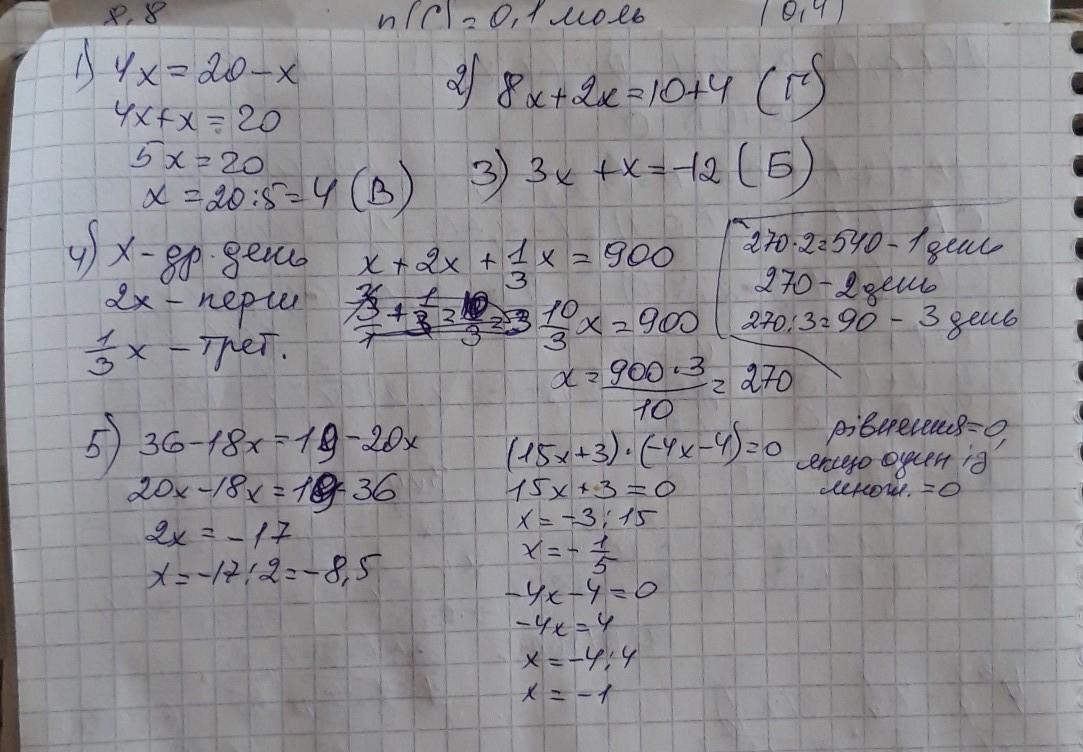 8,8 n(C)=0,1 моль (0,4)
1) 4x=20-x
4x+x=20
5x=20
x=20:5=4 (В)
2) 8x+2x=10+4 (Г)
3) 3x+x=-12 (Б)
4) x - др. день
2x - перш
1/3 x - трет.
x+2x+1/3 x=900
10/3 x=900
x=900·3/10=270
270·2=540-1 день
270-2 день
270:3=90-3 день
5) 36-18x=19-20x
20x-18x=19-36
2x=-17
x=-17:2=-8,5
(15x+3)·(-4x-4)=0
15x+3=0
x=-3:15
x=-1/5
-4x-4=0
-4x=4
x=-4:4
x=-1
рівнення=0,
якщо один із
множ.=0